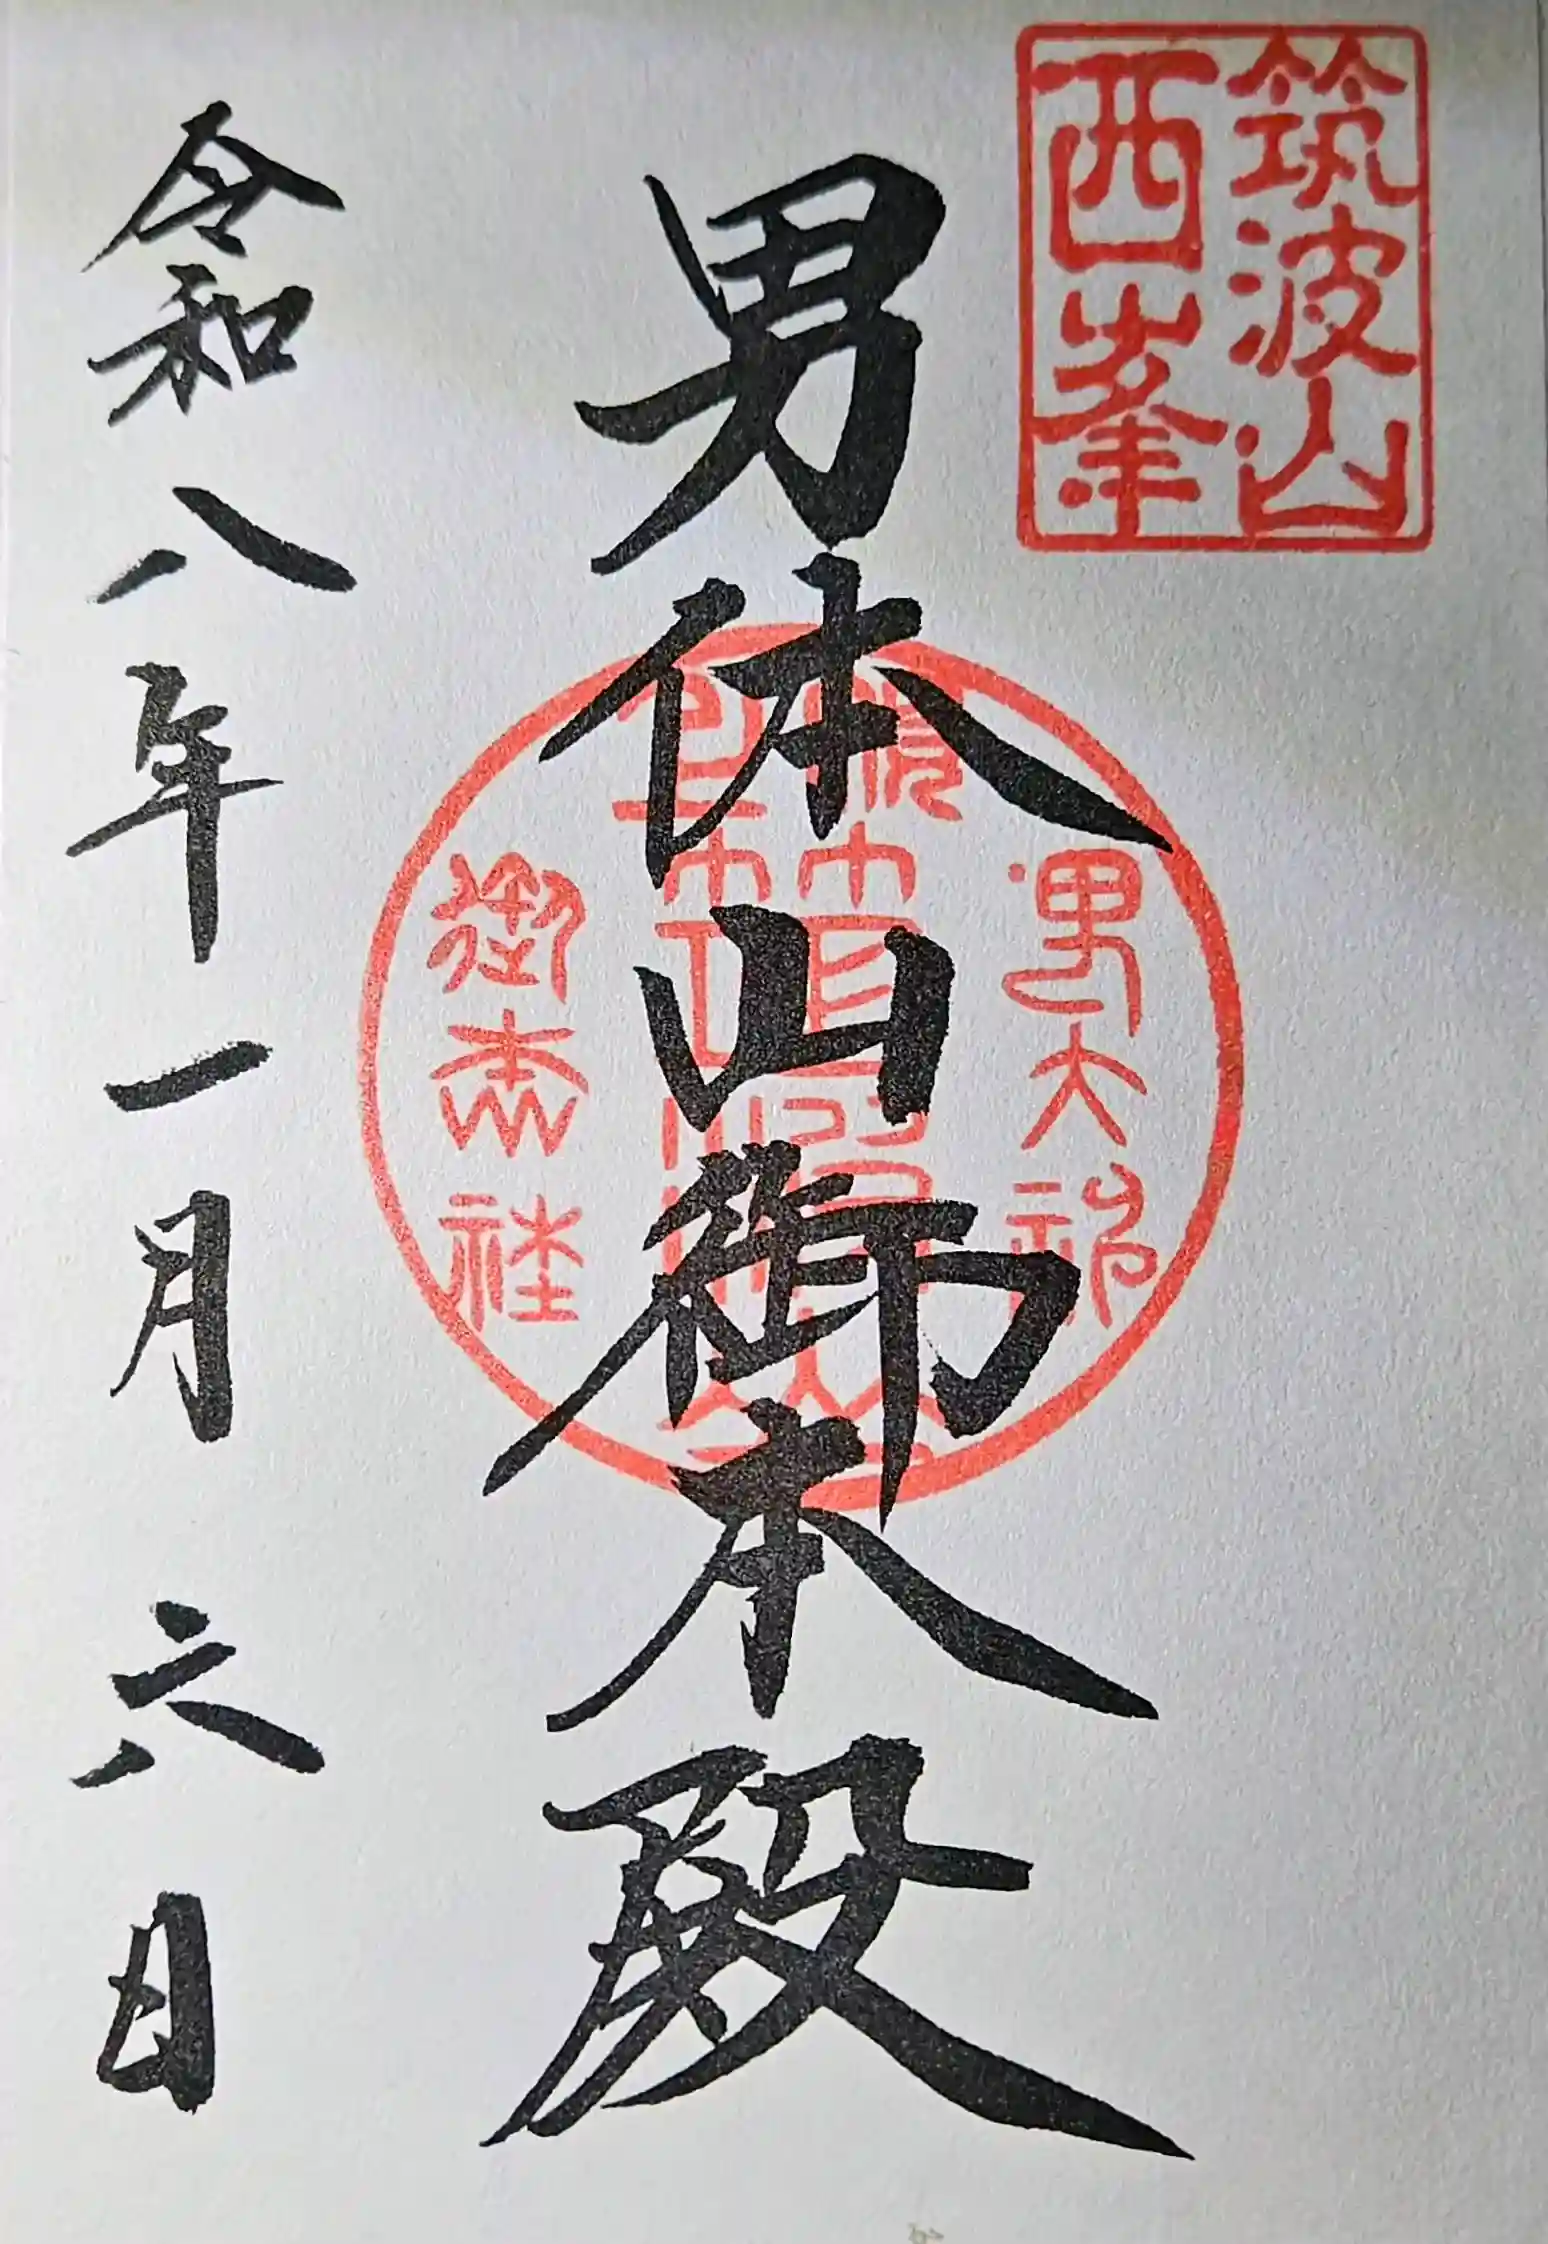 筑波山
西峯
男体山御本殿
男大神
御本社
令和八年一月六日